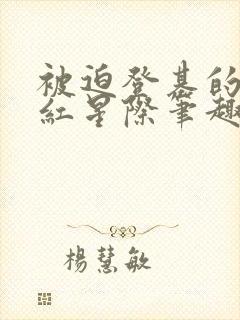 被迫登基的
紅星際筆趣
楊慧敏